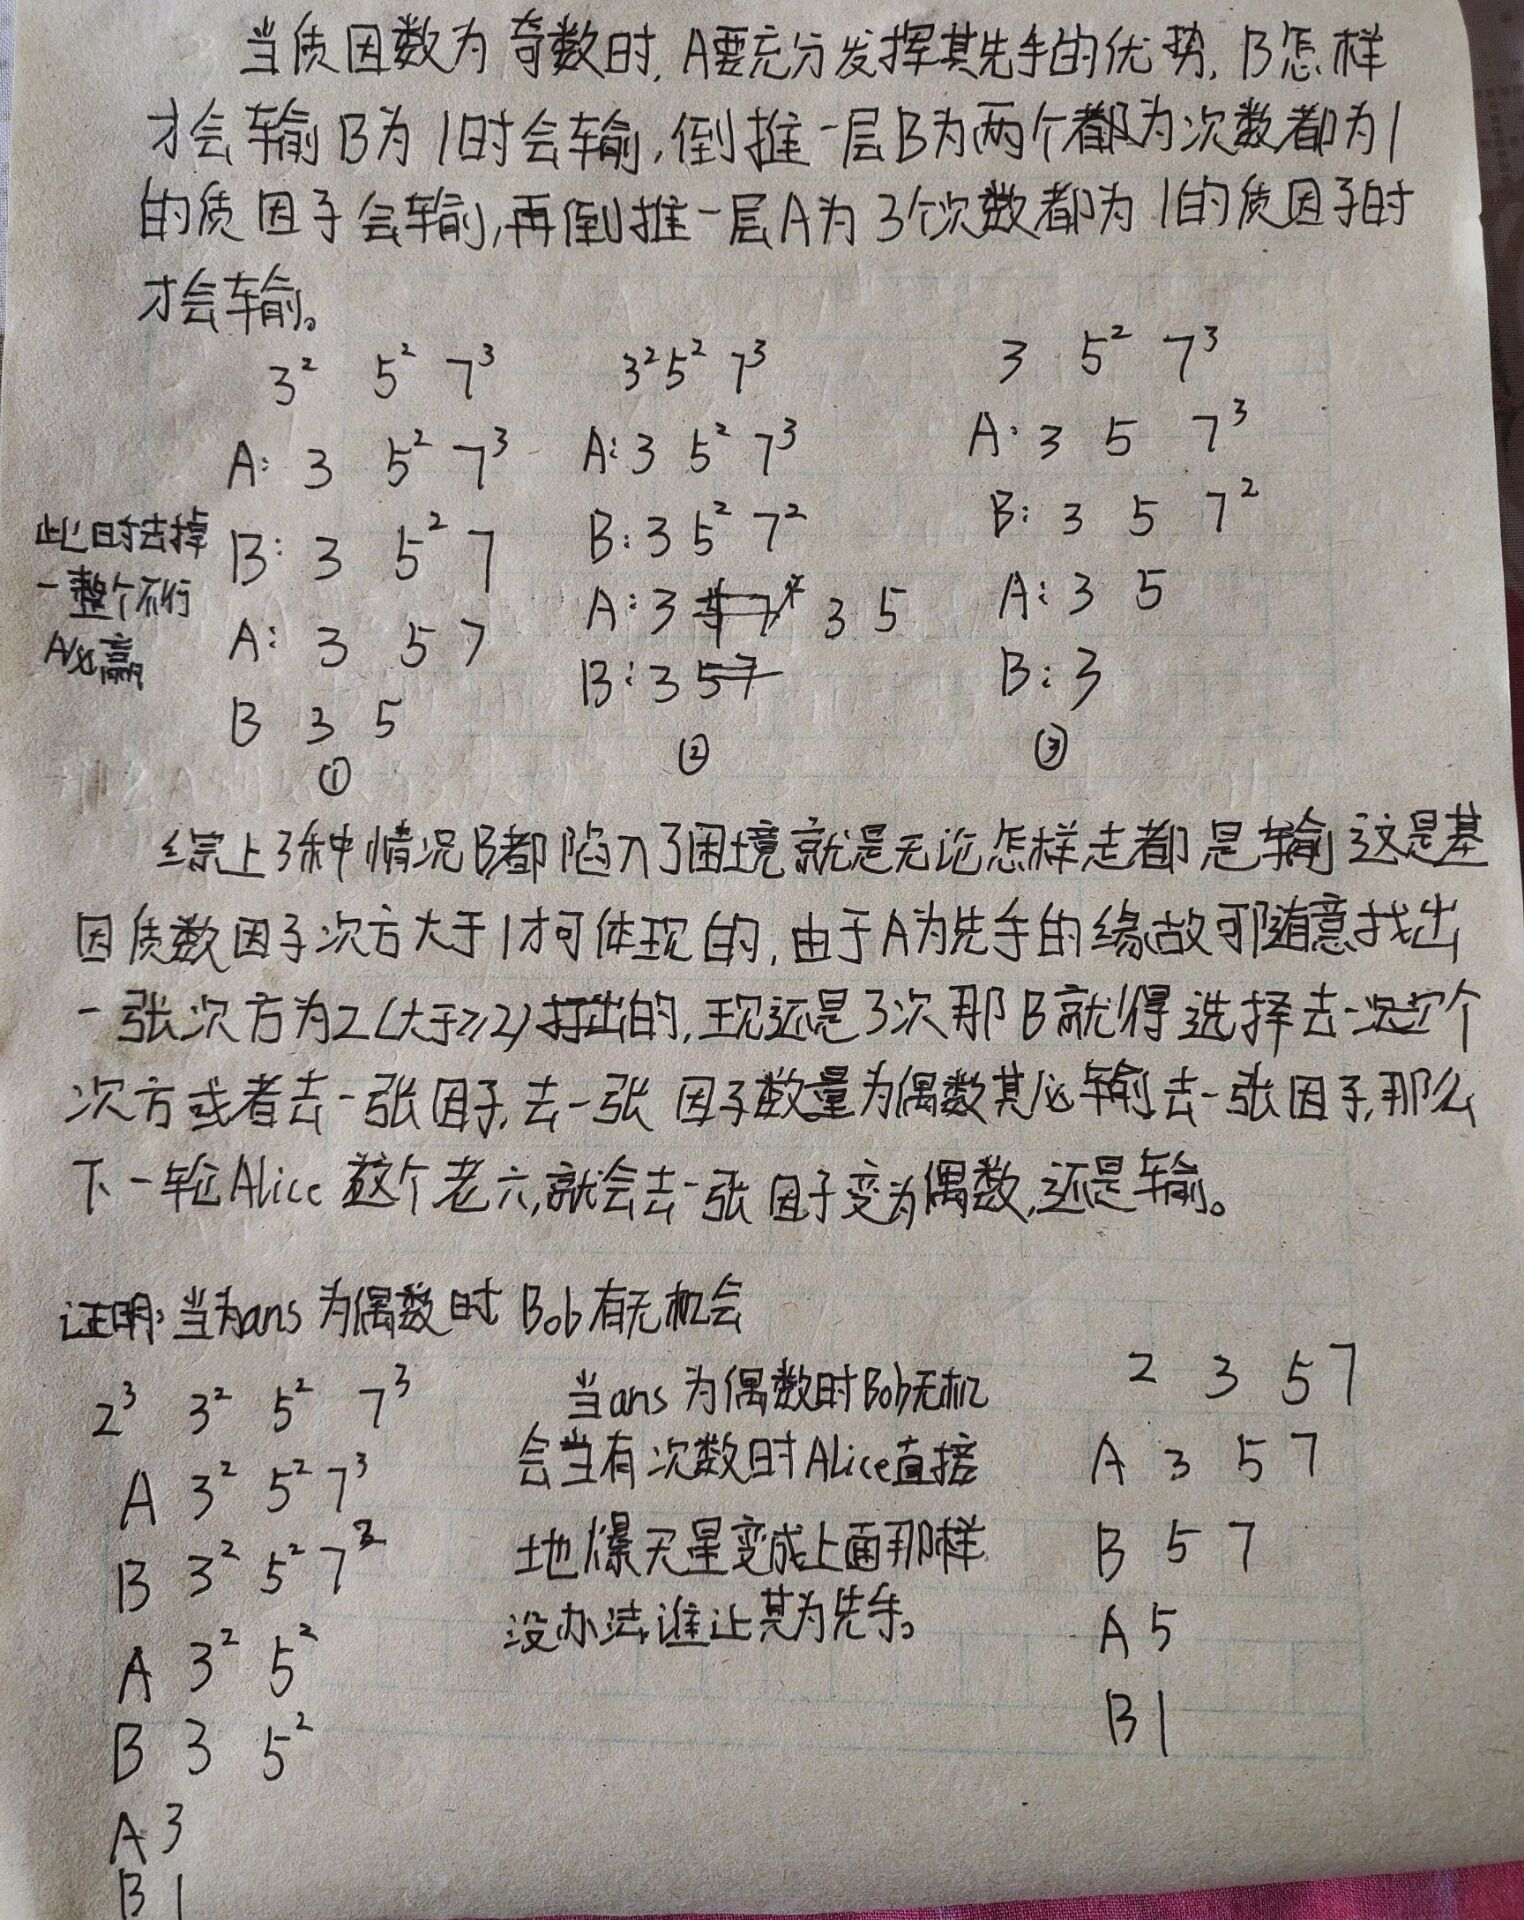 当质因数为奇数时,A要充分发挥其先手的优势,B怎样
才会输B为1时会输,倒推一层B为两个都为次数都为1
的质因子会输,再倒推一层A为3个次数都为1的质因子时
才会输。
3² 5² 7³
A: 3 5² 7³
B: 3 5² 7
A: 3 5 7
B 3 5
①
此时去掉
一整个不行
A必赢
3² 5² 7³
A: 3 5² 7³
B: 3 5² 7²
A: 3 3 5
B: 3 5 7
②
3 5² 7³
A: 3 5 7³
B: 3 5 7²
A: 3 5
B: 3
③
综上3种情况B都陷入了困境就是无论怎样走都是输这是基
因质数因子次方大于1才可体现的,由于A为先手的缘故可随意找出
一张次方为2(大于≥2)打出的,现还是3次那B就得选择去一次这个
次方或者去一张因子,去一张因子数量为偶数其必输去一张因子,那么
下一轮Alice这个老六,就会去一张因子变为偶数,还是输。
证明:当为ans为偶数时Bob有无机会
2³ 3² 5² 7³
A 3² 5² 7³
B 3² 5² 7²
A 3² 5²
B 3 5²
A 3
B 1
当ans为偶数时Bob无机
会当有次数时Alice直接
地爆天星变成上面那样
没办法,谁让其为先手。
2 3 5 7
A 3 5 7
B 5 7
A 5
B 1